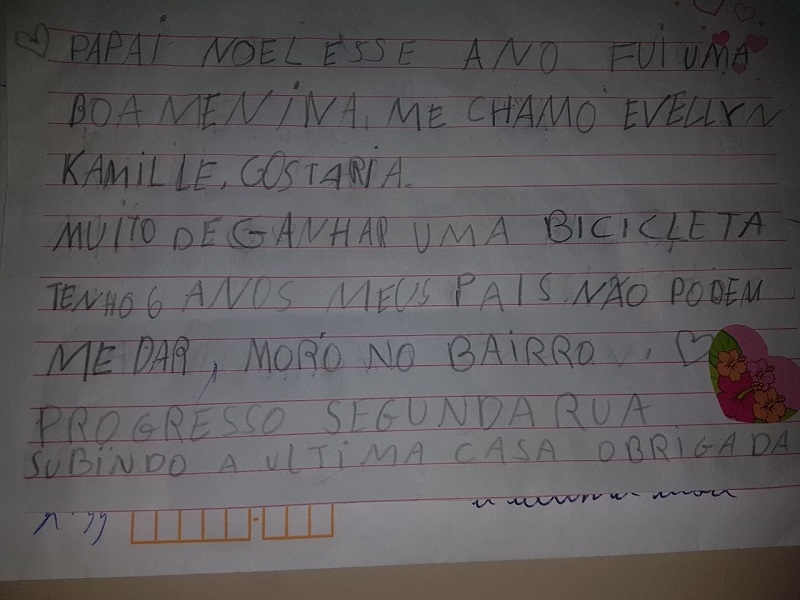 PAPAI NOEL ESSE ANO FUI UMA
BOA MENINA, ME CHAMO EVELLYN
KAMILLE, GOSTARIA.
MUITO DE GANHAR UMA BICICLETA
TENHO 6 ANOS MEUS PAIS NÃO PODEM
ME DAR, MORO NO BAIRRO
PROGRESSO SEGUNDA RUA
SUBINDO A ULTIMA CASA OBRIGADA